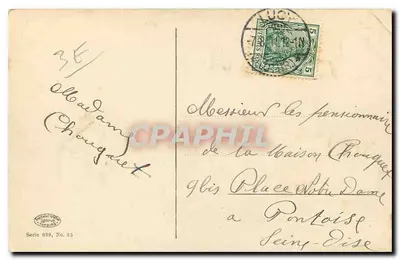 3E/
Madame
Chouquet
LUCY
12-1N
5 5
CPRPHIL.COM
Messieur les pensionnaire
de la Maison Chouquet
9 bis Place Notre Dame
a Pontoise
Seine-Oise
Serie 698, No. 35